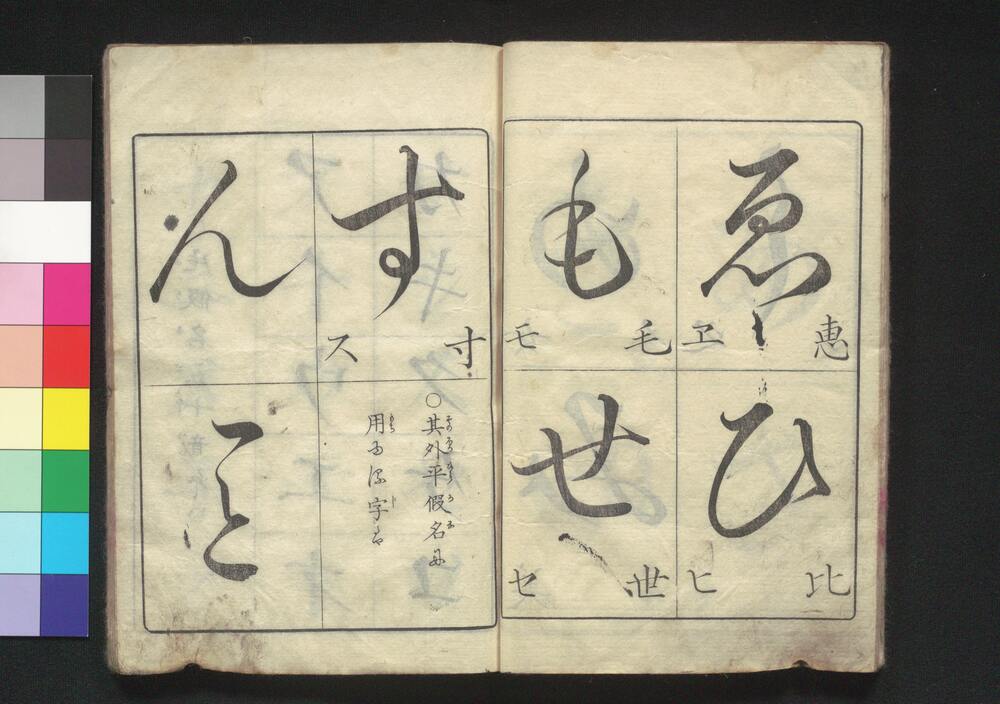 ゑ
恵 ヱ
ひ
比 ヒ
も
毛 モ
せ
世 セ
す
寸 ス
○其外平假名に
用ゆる字は
ん
こと